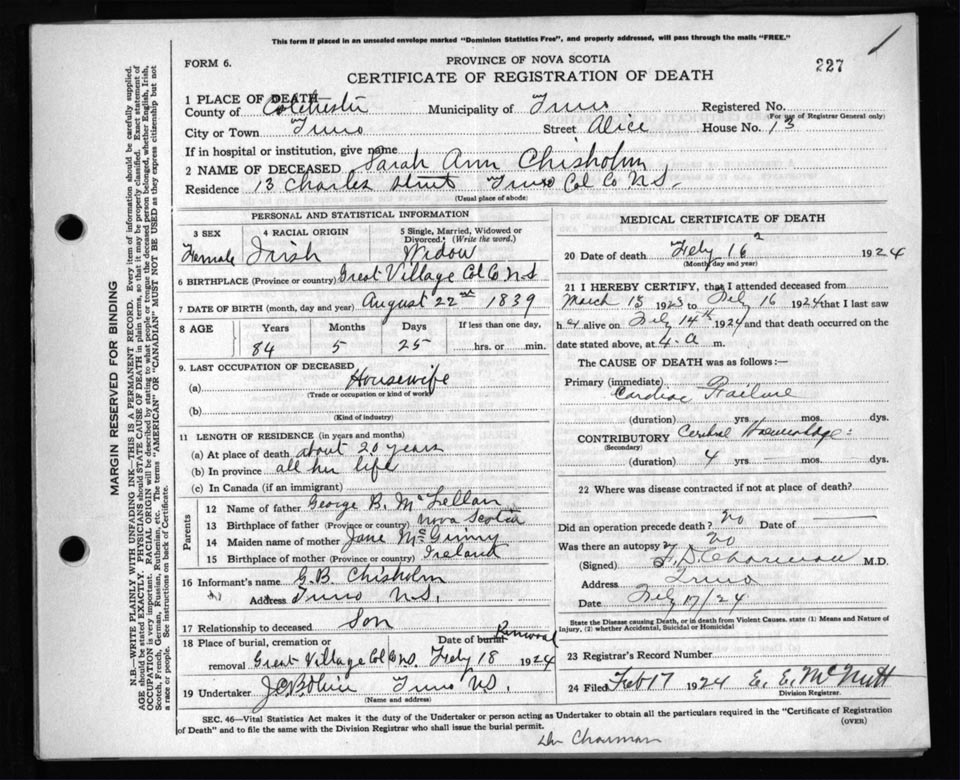 This form if placed in an unsealed envelope marked "Dominion Statistics Free", and properly addressed, will pass through the mails "FREE."
FORM 6.
PROVINCE OF NOVA SCOTIA
227
CERTIFICATE OF REGISTRATION OF DEATH
1 PLACE OF DEATH
County of Colchester Municipality of Truro Registered No.
(For use of Registrar General only)
City or Town Truro Street Alice House No. 13
If in hospital or institution, give name
2 NAME OF DECEASED Sarah Ann Chisholm
Residence 13 Charles Street Truro Col Co N.S.
(Usual place of abode)
PERSONAL AND STATISTICAL INFORMATION
3 SEX 4 RACIAL ORIGIN 5 Single, Married, Widowed or Divorced. (Write the word.)
Female Irish Widow
6 BIRTHPLACE (Province or country) Great Village Col Co N.S
7 DATE OF BIRTH (month, day and year) August 22nd 1839
8 AGE Years Months Days If less than one day,
84 5 25 ......hrs. or ......min.
9. LAST OCCUPATION OF DECEASED
(a) Housewife
(Trade or occupation or kind of work)
(b)
(Kind of industry)
11 LENGTH OF RESIDENCE (in years and months)
(a) At place of death about 20 years
(b) In province all her life
(c) In Canada (if an immigrant)
Parents
12 Name of father George B. McLellan
13 Birthplace of father (Province or country) Nova Scotia
14 Maiden name of mother Jane McGinny
15 Birthplace of mother (Province or country) Ireland
16 Informant's name G.B. Chisholm
Address Truro N.S.
17 Relationship to deceased Son
18 Place of burial, cremation or Date of burial Removal
removal Great Village Col Co N.S. Feby 18 1924
19 Undertaker Truro N.S.
(Name and address)
MEDICAL CERTIFICATE OF DEATH
20 Date of death Feby 16 1924
(Month, day and year)
21 I HEREBY CERTIFY, that I attended deceased from
March 15 1923 to Feby 16 1924 that I last saw
her alive on Feby 14th 1924 and that death occurred on the
date stated above, at 4-a m.
The CAUSE OF DEATH was as follows:—
Primary (immediate) Cardiac Failure
(duration) yrs. mos. dys.
CONTRIBUTORY Cerebral Haemorrhage
(Secondary)
(duration) 4 yrs. mos. dys.
22 Where was disease contracted if not at place of death?
Did an operation precede death? no Date of
Was there an autopsy? no
(Signed) Charman M.D.
Address Truro
Date Feby 17/24
State the Disease causing Death, or in death from Violent Causes, state (1) Means and Nature of
Injury, (2) whether Accidental, Suicidal or Homicidal
23 Registrar's Record Number
24 Filed Feb 17 1924 E. E. McNutt
Division Registrar.
SEC. 46—Vital Statistics Act makes it the duty of the Undertaker or person acting as Undertaker to obtain all the particulars required in the "Certificate of Registration
of Death" and to file the same with the Division Registrar who shall issue the burial permit.
(OVER)
Dr Charman
MARGIN RESERVED FOR BINDING
N.B.—WRITE PLAINLY WITH UNFADING INK—THIS IS A PERMANENT RECORD. Every item of information should be carefully supplied.
AGE should be stated EXACTLY. PHYSICIANS should STATE CAUSE OF DEATH in plain terms, so that it may be properly classified. Exact statement of
OCCUPATION is very important. RACIAL ORIGIN will be described by stating to what people or tongue the deceased person belonged, whether English, Irish,
Scotch, French, German, Russian, Ruthenian, etc. The terms "AMERICAN" OR "CANADIAN" MUST NOT BE USED as they express citizenship but not
a race or people. See instructions on back of Certificate.